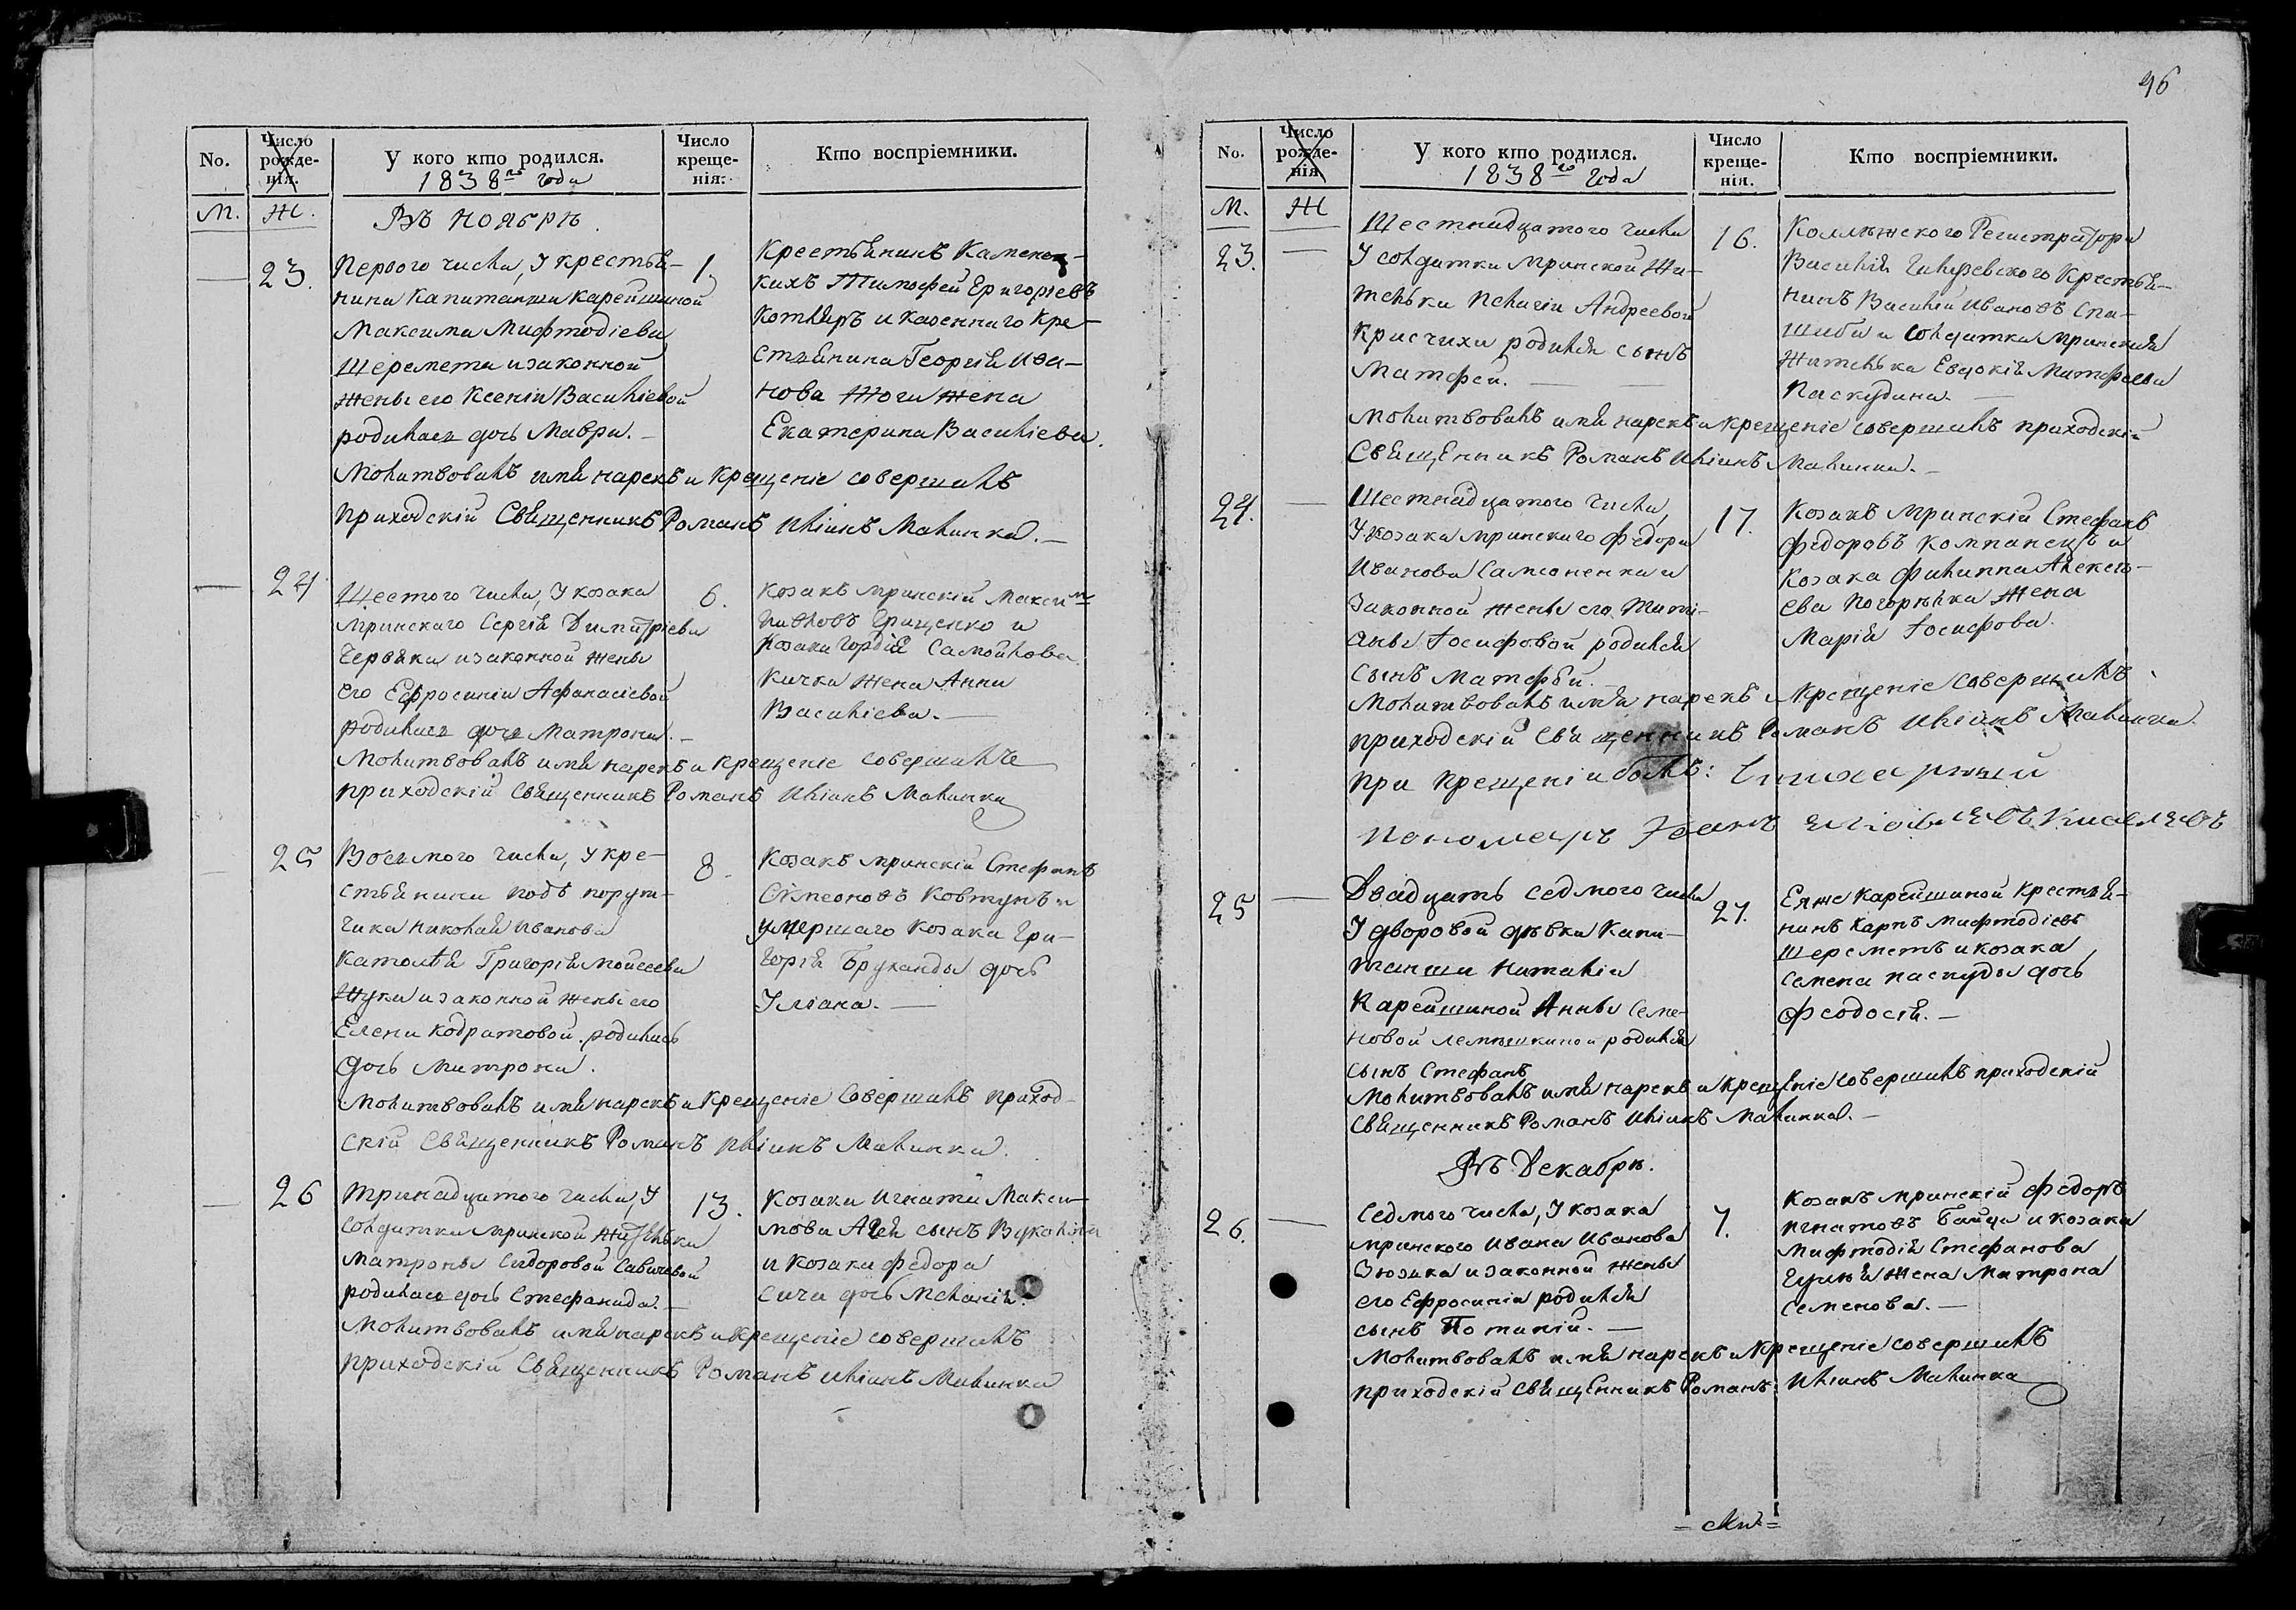 96
No.
Число рожде-нія.
У кого кто родился.
1838го года
Число креще-нія.
Кто воспріемники.
М. Ж.
Въ Ноябрѣ.
— 23.
Первого числа, У крестья-
нина Капитанши Карейшиной
Максима Мифтодіева
Шеремета и законной
жены его Ксеніи Василіевой
родилась дочь Мавра. —
1.
Крестьянинъ
Тимофей Григоріевъ
Котляръ и казеннаго кре-
стьянина Георгія Ива-
нова жена
Екатерина Василіева.
Молитвовалъ имя нарекъ и крещеніе совершилъ
приходскій Священникъ Романъ Иліинъ Малинка. —
— 24
Шестого числа, У козака
мринскаго Сергія Димитріева
Червяка и законной жены
его Ефросиніи Афанасіевой
родилась дочь Матрона. —
6.
Козакъ мринскій Максимъ
Павловъ Грищенко и
Козака Гордія Самойлова
Кичка жена Анна
Василіева. —
Молитвовалъ имя нарекъ и крещеніе совершилъ
приходскій Священникъ Романъ Иліинъ Малинка
— 25
Восьмого числа, У кре-
стьянина подъ порут-
чика Николая Иванова
Григорія Моисеева
Жука и законной жены его
Елены Кодратовой родилась
дочь Матрона.
8.
Козакъ мринскій Стефанъ
Симеоновъ Ковтунъ и
умершаго козака Гри-
горія дочь
Уліана. —
Молитвовалъ имя нарекъ и крещеніе совершилъ приход-
скій Священникъ Романъ Иліинъ Малинка.
— 26
Тринадцатого числа, У
солдатки мринской жительки
Матроны Сидоровой Савичевой
родилась дочь Стефанида. —
13.
Козака Игнатія Макси-
мова сынъ
и козака Федора
дочь Меланія.
Молитвовалъ имя нарекъ и крещеніе совершилъ
приходскій Священникъ Романъ Иліинъ Малинка
No.
Число рожде-нія
У кого кто родился.
1838го года
Число креще-нія.
Кто воспріемники.
М. Ж
23. —
Шестнадцатого числа
У солдатки мринской жи-
тельки Пелагіи Андреевой
родился сынъ
Матфей. —
16.
Коллежского Регистратора
Василія крестья-
нинъ Василій Ивановъ
и солдатка мринская
жителька Евдокія Матфеева
Паскудина. —
Молитвовалъ имя нарекъ и крещеніе совершилъ приходскій
Священникъ Романъ Иліинъ Малинка. —
24. —
Шестнадцатого числа,
У козака мринскаго Федора
Иванова Самсоненка и
законной жены его Тати-
аны Іосифовой родился
сынъ Матфей. —
17.
Козакъ мринскій Стефанъ
Федоровъ Компанецъ и
козака Филиппа Алексѣ-
ева Погорѣлка жена
Марія Іосифова.
Молитвовалъ имя нарекъ и крещеніе совершилъ
приходскій Священникъ Романъ Иліинъ Малинка.
при крещеніи былъ: Стихарный
пономарь Іоанъ
25 —
Двадцать седмого числа
У дворовой дѣвки Капи-
танши Наталіи
Карейшиной Анны Семе-
новой родился
сынъ Стефанъ
27.
Еяже Карейшиной крестья-
нинъ Карпъ Мифтодіевъ
Шереметъ и козака
Семена Паскуды дочь
Феодосія. —
Молитвовалъ имя нарекъ и крещеніе совершилъ приходскій
Священникъ Романъ Иліинъ Малинка. —
Въ Декабрѣ.
26. —
Седмого числа, У козака
мринского Ивана Иванова
Зюзика и законной жены
его Ефросиніи родился
сынъ Потапій. —
7.
Козакъ мринскій Федоръ
Игнатовъ и козака
Мифтодія Стефанова
жена Матрона
Семенова. —
Молитвовалъ имя нарекъ и крещеніе совершилъ
приходскій Священникъ Романъ Иліинъ Малинка